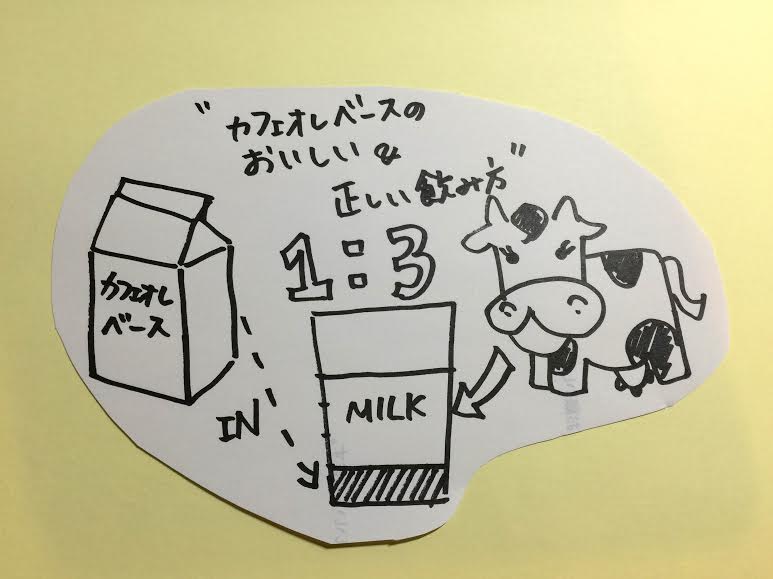 "カフェオレベースの
おいしい &
正しい飲み方"
1:3
カフェオレ
ベース
MILK
IN